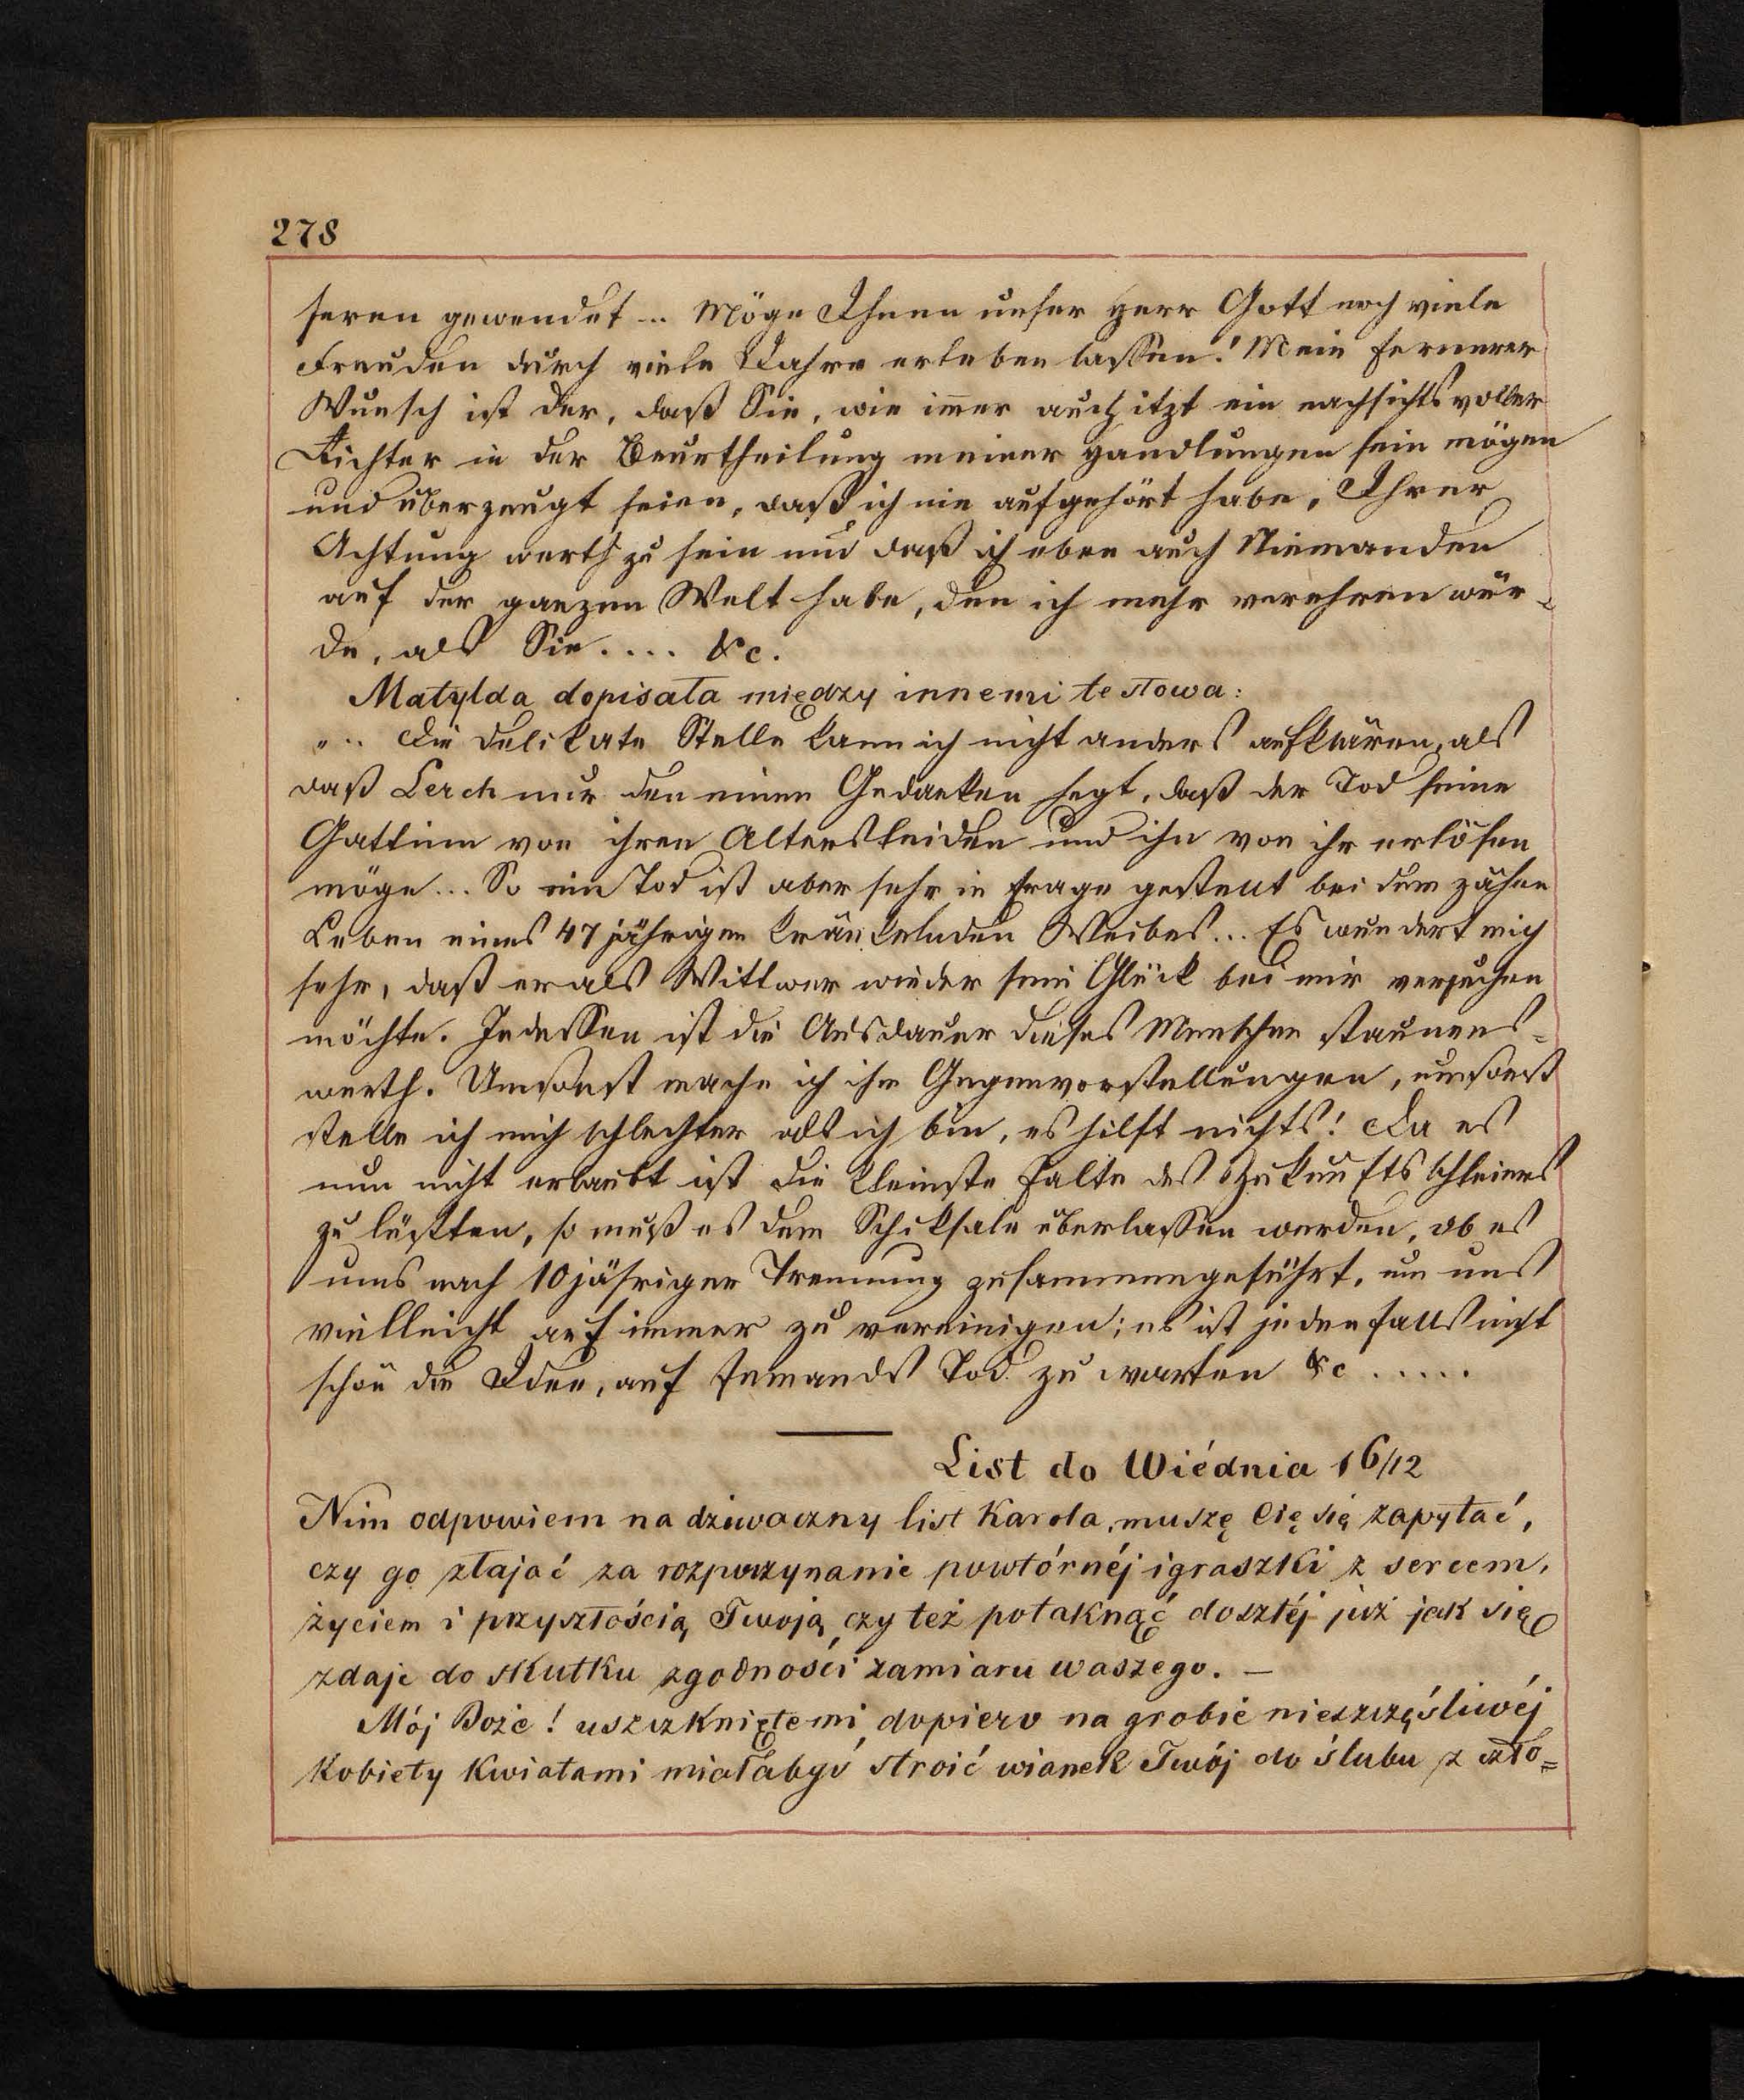 278
seren gewendet... Möge Ihnen unser Herr Gott noch viele
Freuden durch viele Jahre erleben lassen! Mein fernerer
Wunsch ist der, daß Sie, wie im̄er auch itzt ein nachsichtsvoller
Richter in der Beurtheilung meiner Handlungen sein mögen
und überzeugt seien, daß ich nie aufgehört habe, Ihrer
Achtung werth zu sein und daß ich eben auch Niemanden
auf der ganzen Welt habe, den ich mehr verehren wür-
de, als Sie.... &c.
Matylda dopisała między innemi te słowa:
"... Die delikate Stelle kann ich nicht anders aufklären, als
daß Lerch nur den einen Gedanken hegt, daß der Tod seine
Gattinn von ihren Altersleiden und ihn von ihr erlösen
möge... So ein Tod ist aber sehr in Frage gestellt bei dem zähen
Leben eines 47 jährigen kränkelnden Weibes... Es wundert mich
sehr, daß er als Wittwer wieder sein Glück bei mir versuchen
möchte. Indessen ist die Ausdauer dieses Menschen staunens=
werth. Umsonst mache ich ihm Gegenvorstellungen, umsonst
stelle ich mich schlechter als ich bin, es hilft nichts! Da es
nun nicht erlaubt ist die kleinste Falte des Zukunftsschleiers
zu lüften, so muß es dem Schiksale überlassen werden, ob es
uns nach 10 jähriger Trennung zusammengeführt, um uns
vielleicht auf immer zu vereinigen; es ist jedenfalls nicht
schön die Idee, auf Jemands Tod zu warten &c.....
List do Wiédnia 16/12
Nim odpowiem na dziwaczny list Karola, muszę Cię się zapytać,
czy go złajać za rozpoczynanie powtórnéj igraszki z sercem,
życiem i przyszłością Twoją, czy też potaknąć doszłéj już jak się
zdaje do skutku zgodności zamiaru waszego. —
Mój Boże! uszczkniętemi dopiero na grobie nieszczęśliwéj
kobiety kwiatami miałabyś stroić wianek Twój do ślubu z czło=